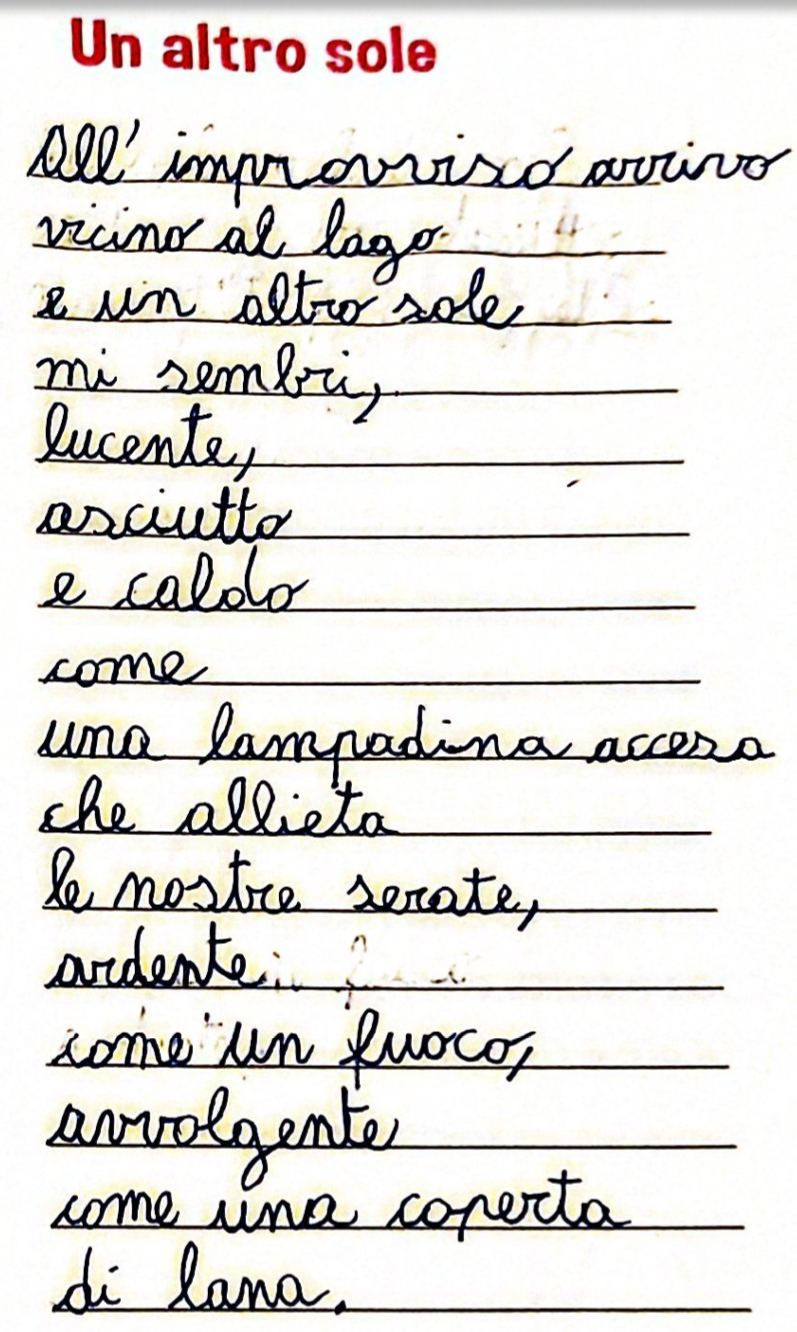 Un altro sole
All' improvviso arrivo
vicino al lago
e un altro sole
mi sembri,
lucente,
asciutto
e caldo
come
una lampadina accesa
che allieta
le nostre serate,
ardente
come un fuoco,
avvolgente
come una coperta
di lana.